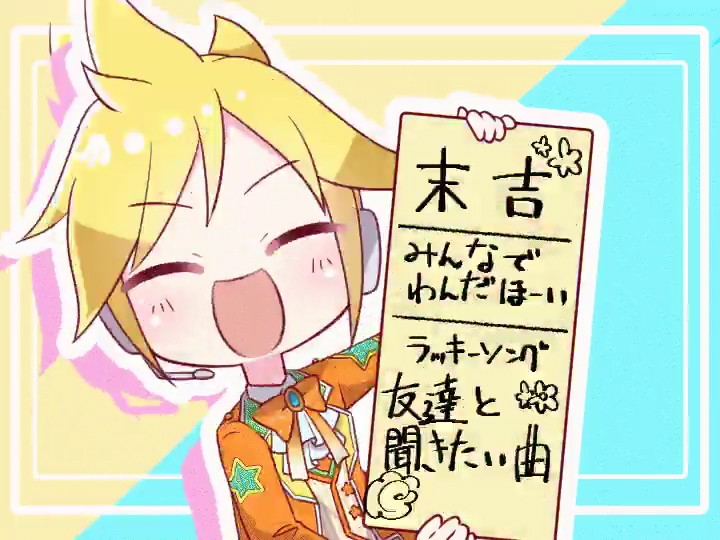 末吉
みんなで
わんだほーい
ラッキーソング
友達と
聞きたい曲